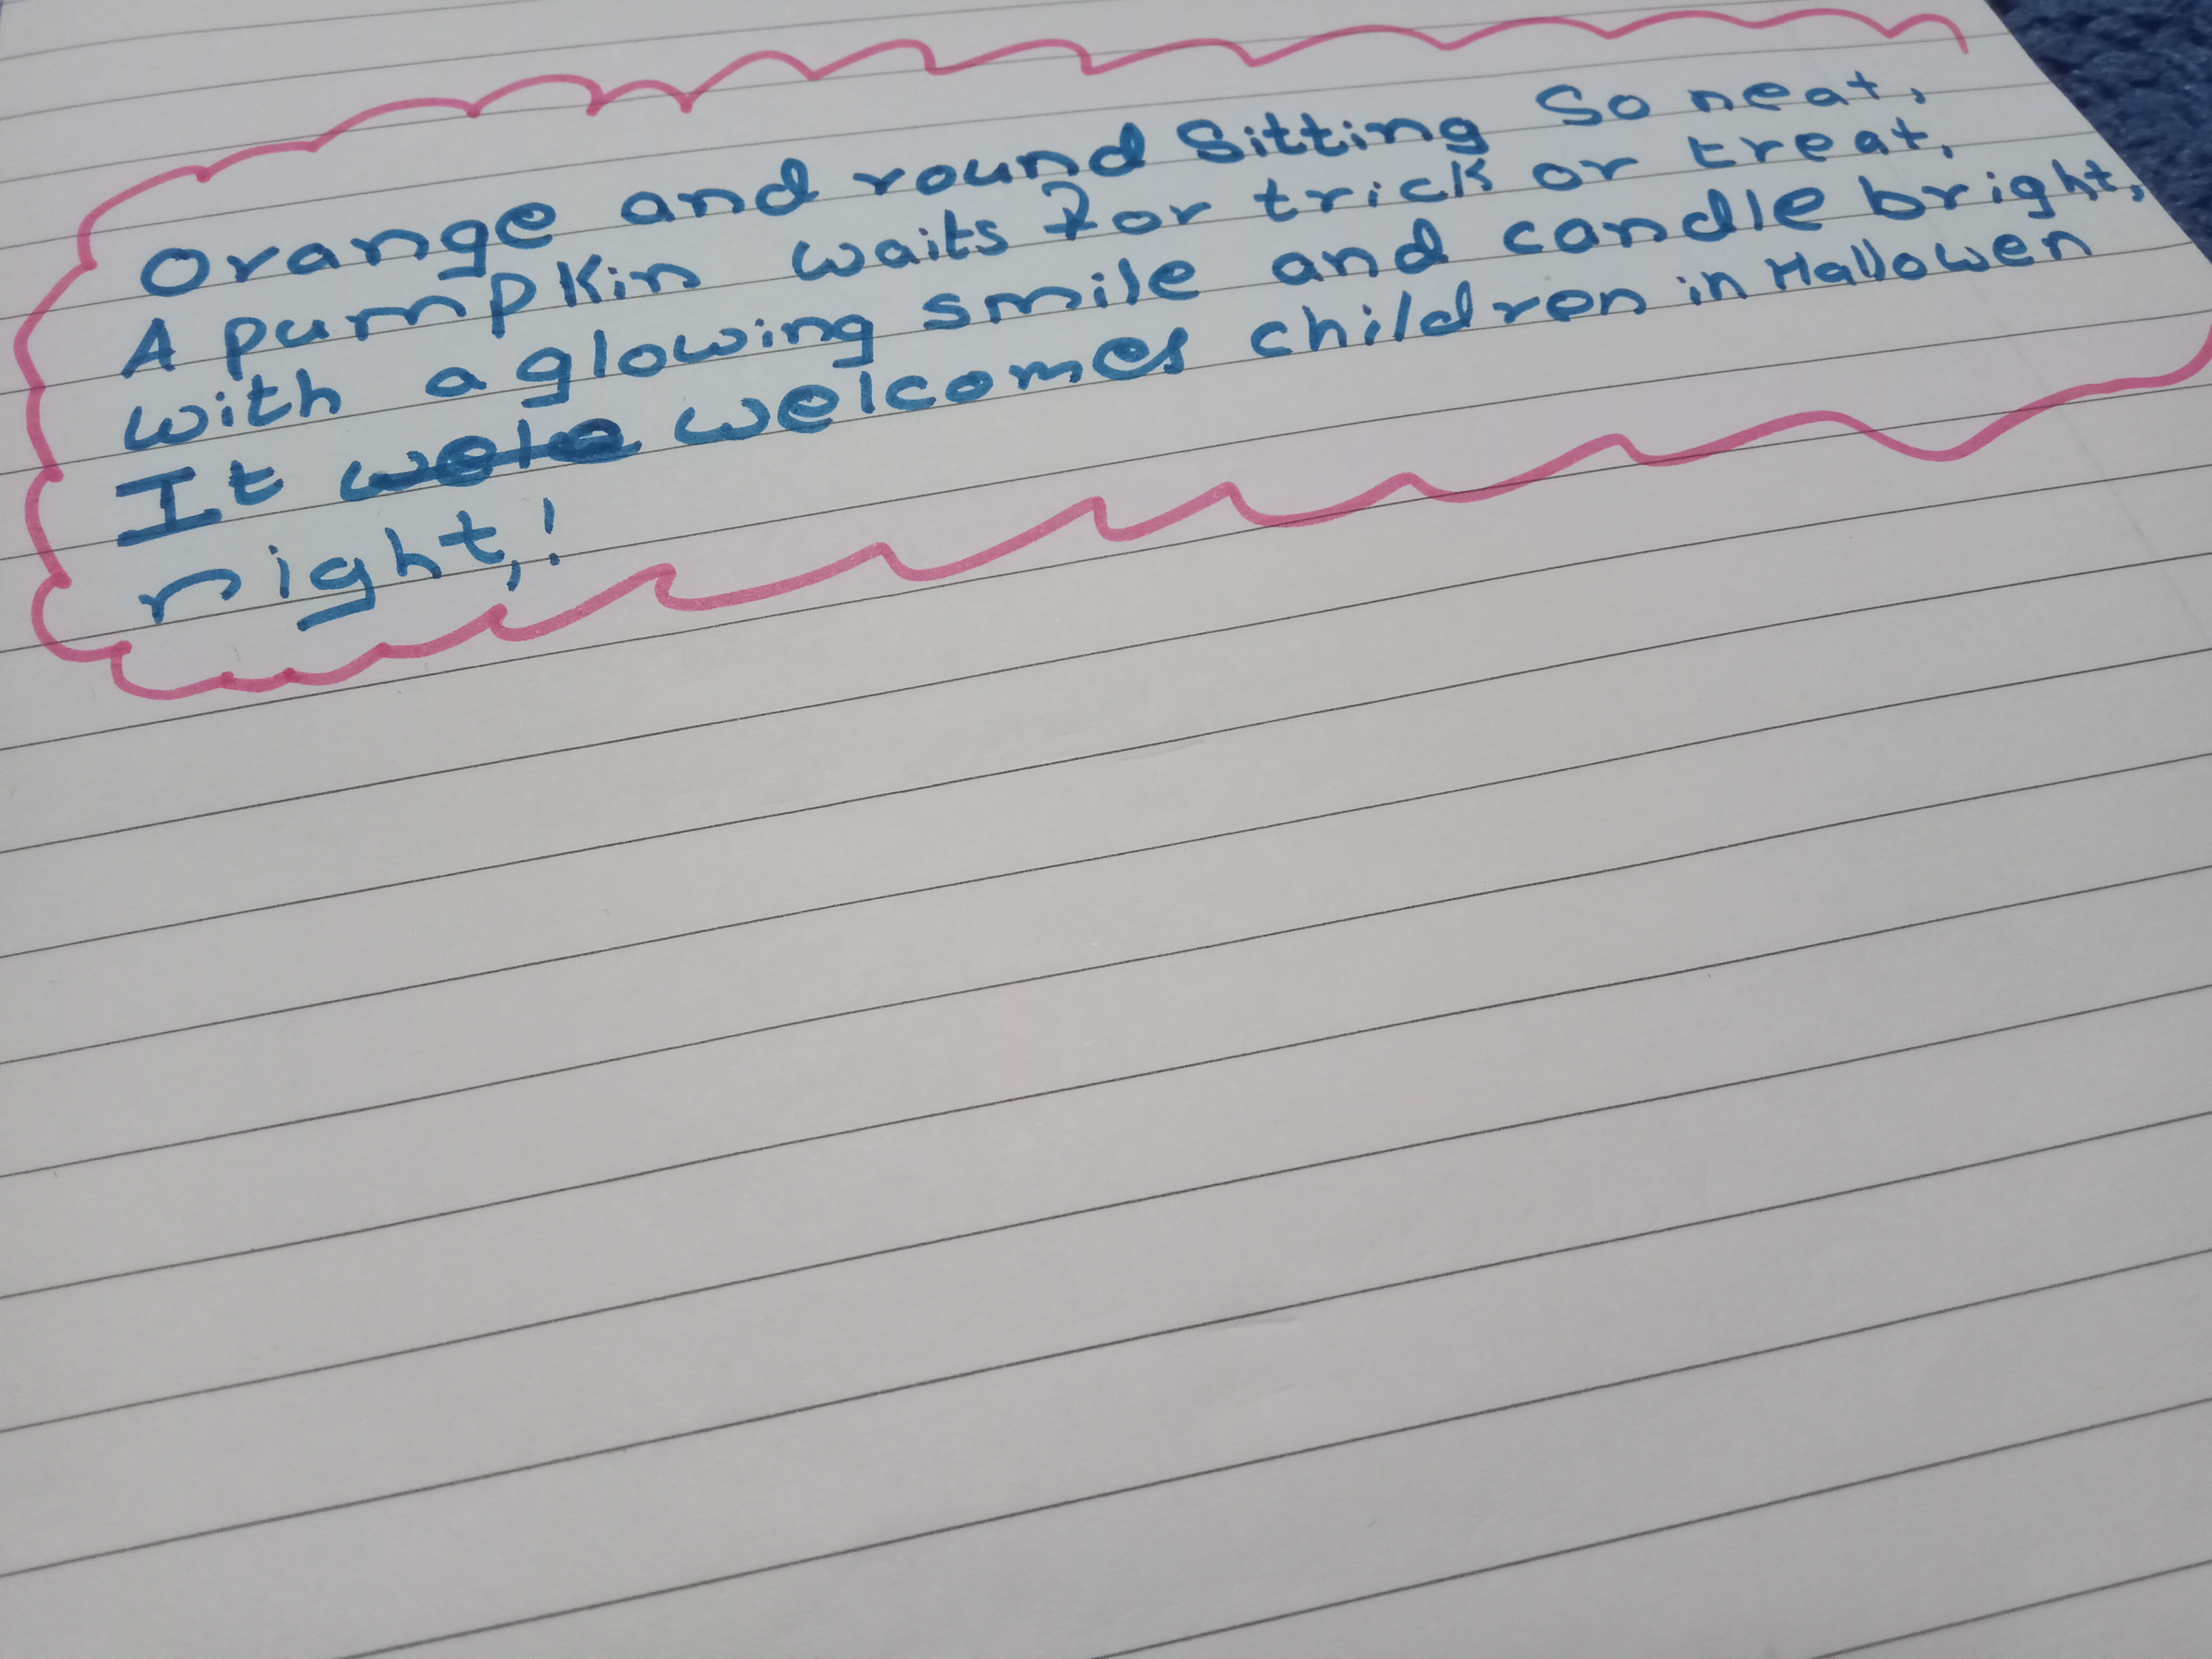 Orange and round Sitting So neat,
A pumpkin waits for trick or treat,
with a glowing smile and candle bright,
It wele welcomes children in Hallowen
right,!